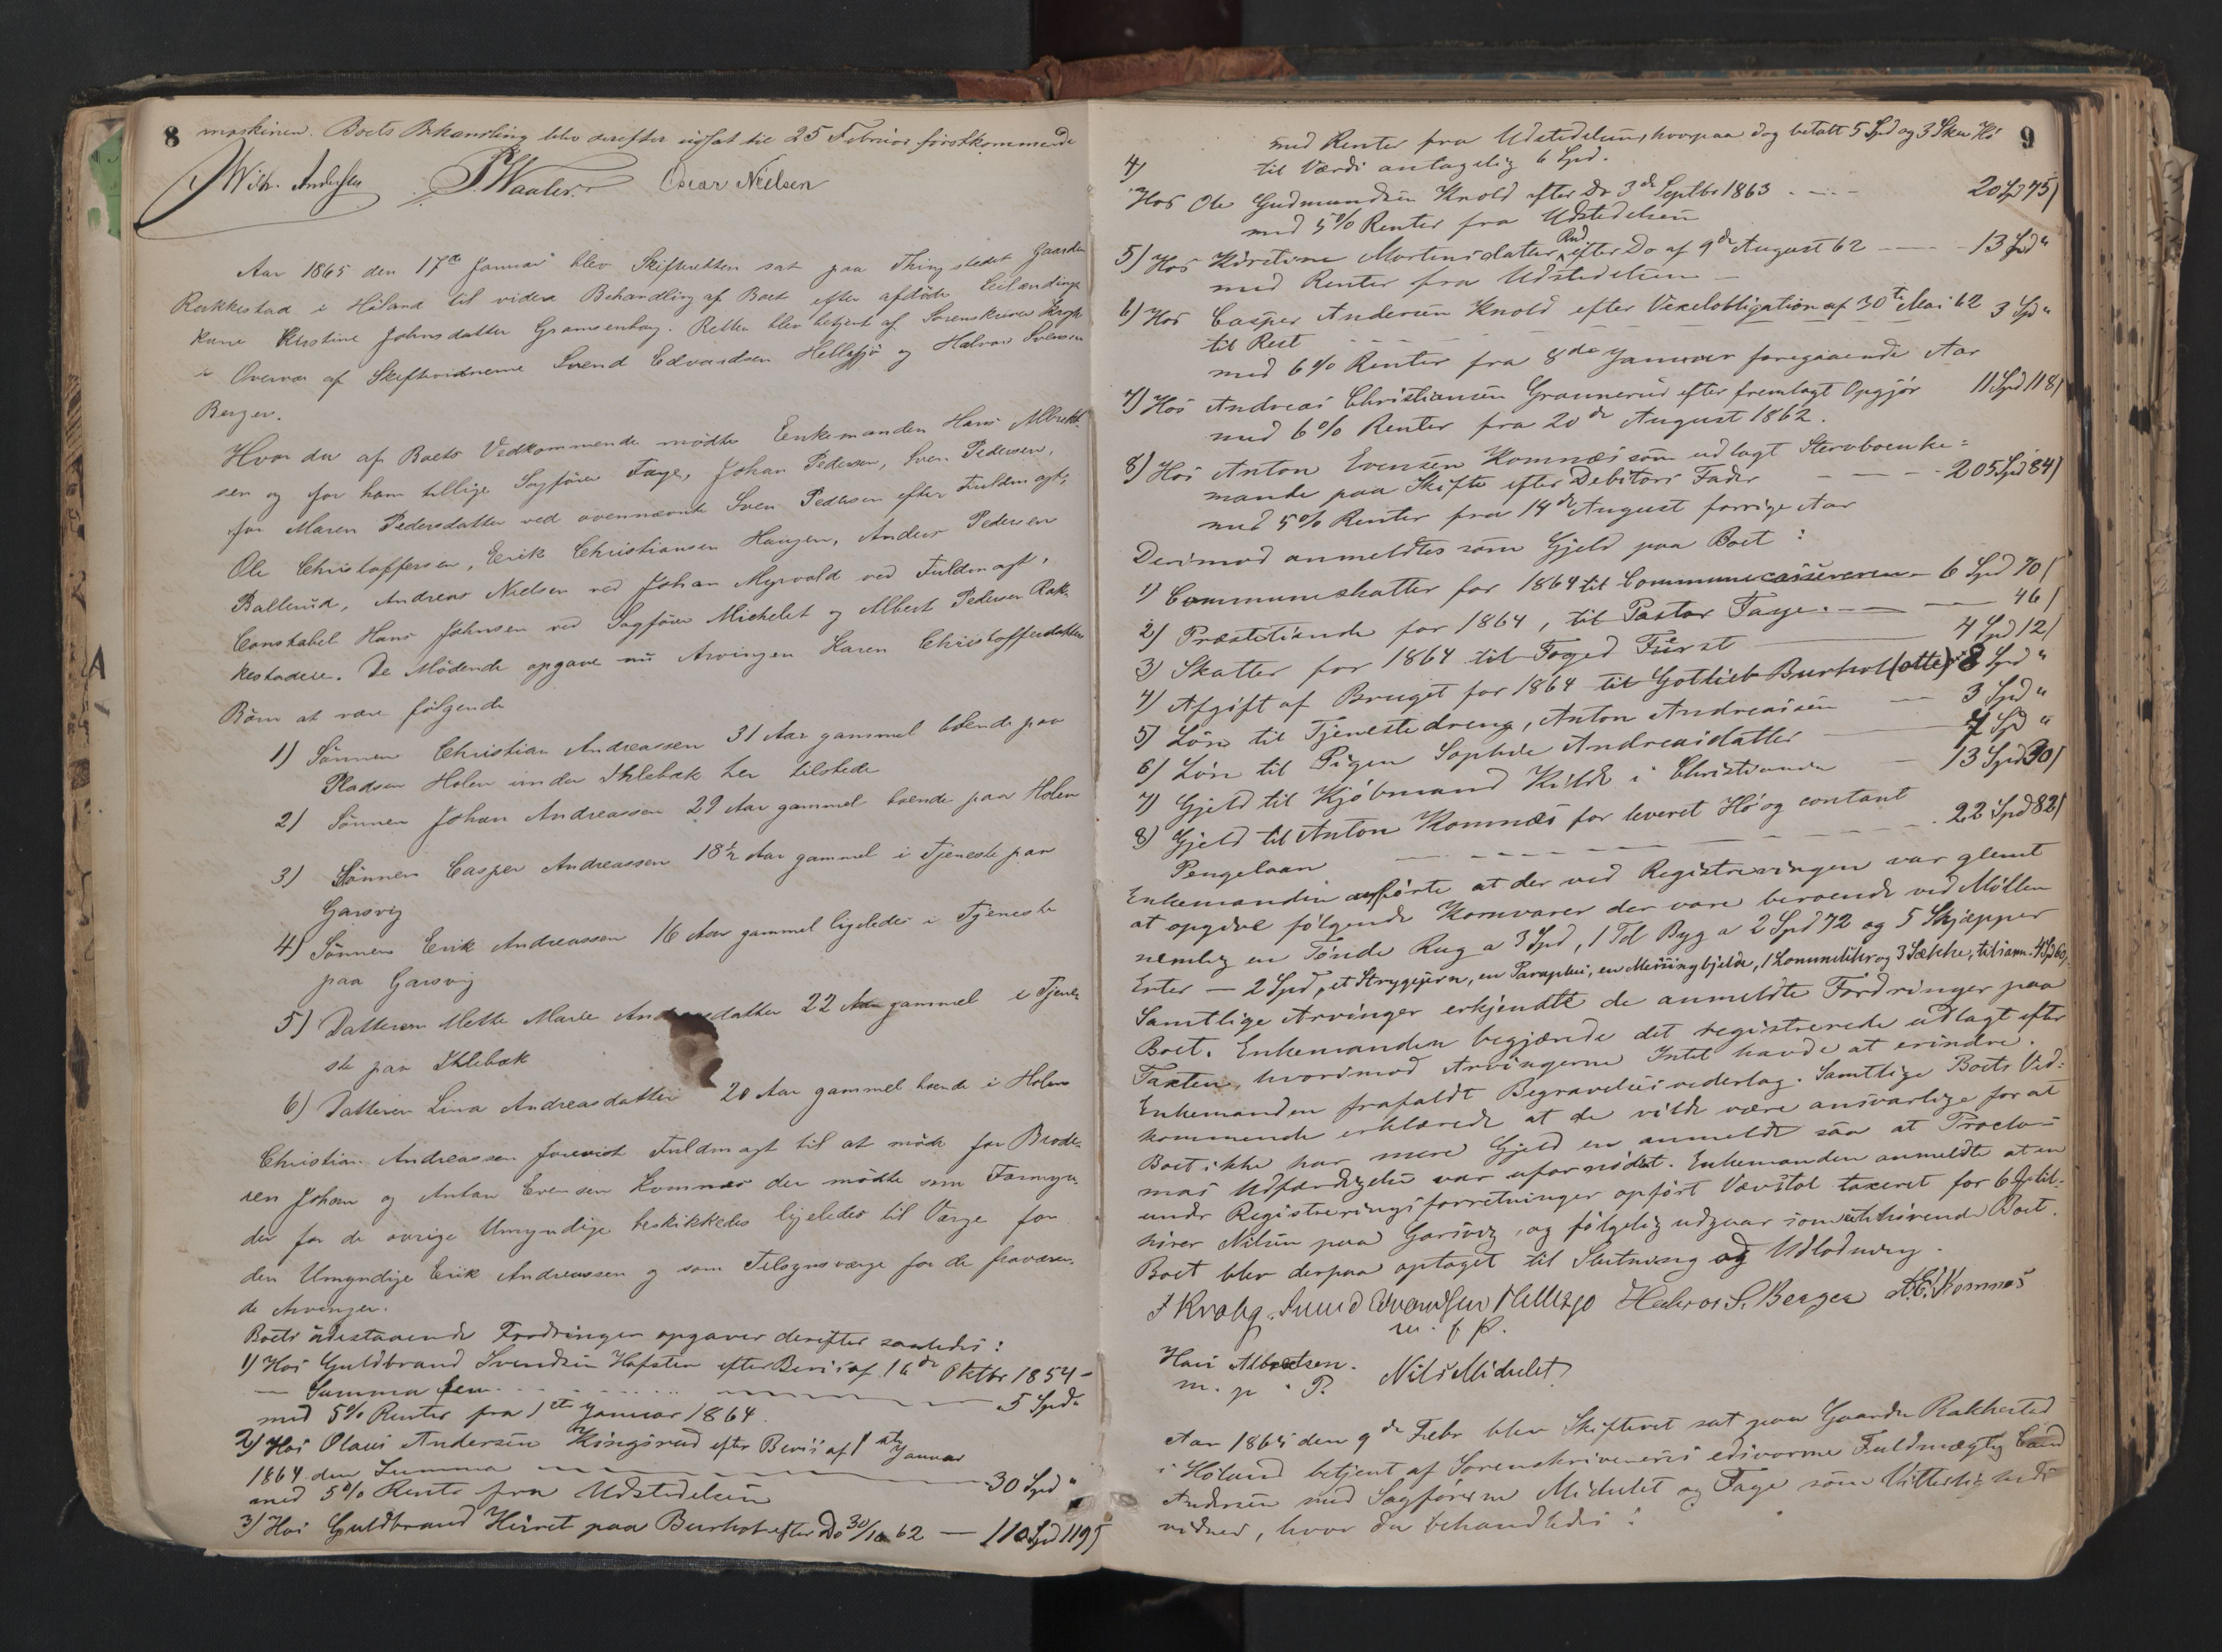 8
maskinen. Boets Behandling blev derefter udsat til 25 Februar förstkommende
Wilh. Andersen Oscar Nielsen
Aar 1865 den 17de Januar blev Skifteretten sat paa Thingstedet Gaarden
Rakkestad i Höland til videre Behandling af Boet efter afdöde Leilændings
kone Kirstine Johnsdatter Gramsenhaug. Retten blev betjent af Sorenskriver
i Overvær af Skiftevidnerne Svend Edvardsen Hellesjö og Halvor Svensen
Berger.
Hvor da af Boets Vedkommende mödte Enkemanden Hans Albrekt-
sen og for ham tillige Sagförer Faye, Johan Pedersen, Sven Pedersen,
for Maren Pedersdatter ved ovennævnte Sven Pedersen efter Fuldmagt,
Ole Christoffersen, Erik Christiansen Haugen, Anders Pedersen
Ballerud, Andreas Nielsen ved Johan Myrvold ved Fuldmagt,
Constabel Hans Johnsen ved Sagförer Michelet og Albert Pedersen Rak-
kestadeie. De Mödende opgave nu Arvingen Karen Christoffersdatters
Börn at være fölgende
1) Sönnen Christian Andreassen 31 Aar gammel boende paa
Pladsen Holen under Ihlebæk her tilstede
2) Sönnen Johan Andreassen 29 Aar gammel boende paa Holen
3) Sönnen Casper Andreassen 18½ Aar gammel i Tjeneste paa
Garsvig
4) Sönnen Erik Andreassen 16 Aar gammel ligeledes i Tjeneste
paa Garsvig
5) Datteren Mette Marie Andreasdatter 22 Aar gammel i Tjene-
ste paa Ihlebæk
6) Datteren Lina Andreasdatter 20 Aar gammel boende i Holen
Christian Andreassen foreviste Fuldmagt til at möde for Brode-
ren Johan og Anton Evensen Komnæs der mödte som Formyn-
der for de övrige Umyndige beskikkedes ligeledes til Værge for
den Umyndige Erik Andreassen og som Tilsynsværge for de fraværen-
de Arvinger.
Boets udestaaende Fordringer opgaves derefter saaledes:
1) Hos Guldbrand Svendsen Hafsten efter Bevis af 16de Oktbr 1854 -
— Summa fem - - - 5 Spd "
med 5% Renter fra 1ste Januar 1864.
2) Hos Olaus Andersen Kingsrud efter Bevis af 1ste Januar
1864 den Summa — 30 Spd "
med 5% Rente fra Udstedelsen
3) Hos Guldbrand Hirret paa Burhol efter Do 30/10 62 — 110 Spd 119 s
9
med Renter fra Udstedelsen, hvorpaa dog betalt 5 Spd og 3 Sku Hö
til Værdi antagelig 6 Spd.
4)
Hos Ole Gudmundsen Knold efter Do 3de Septbr 1863 - - - 20 Spd 75 s
med 5% Renter fra Udstedelsen
5) Hos Kirstine Mortensdatter Rud efter Do af 9de August 62 — 13 Spd "
med Renter fra Udstedelsen —
6) Hos Casper Andersen Knold efter Vexelobligation af 30te Mai 62 3 Spd "
til Rest
med 6% Renter fra 8de Januar foregaaende Aar
7) Hos Andreas Christiansen Grannerud efter fremlagt Opgjör 11 Spd 118 s
med 6% Renter fra 20de August 1862.
8) Hos Anton Evensen Komnæs som udlagt Stervboenke=
mande paa Skifte efter Debitors Fader — 205 Spd 84 s
med 5% Renter fra 14de August forrige Aar
Derimod anmeldtes som Gjeld paa Boet:
1) Communeskatter for 1864 til Communecassereren - 6 Spd 70 s
2) Præstetiende for 1864, til Pastor Faye. — 46 s
3) Skatter for 1864 til Foged Fürst — 4 Spd 12 s
4) Afgift af Bruget for 1864 til Gotlieb Burhol (otte) 8 Spd "
5) Lön til Tjenestedreng, Anton Andreassen — 3 Spd "
6) Lön til Pigen Sophie Andreasdatter — 7 Spd "
7) Gjeld til Kjöbmand Kilde i Christiania — 13 Spd 30 s
8) Gjeld til Anton Komnæs for leveret Hö og contant
Pengelaan — 22 Spd 82 s
Enkemanden anförte at der ved Registreringen var glemt
at opgive fölgende Kornvarer der vare beroende ved Möllen
nemlig en Tönde Rug a 3 Spd, 1 Td Byg a 2 Spd 72 og 5 Skjæpper
Erter — 2 Spd, et Strygejern, en Paraplui, en Messingbjelde, 1 Lommeuhr og 3 Sække, tilsamm. 4 Spd 60.
Samtlige Arvinger erkjendte de anmeldte Fordringer paa
Boet. Enkemanden begjærede det registrerede udlagt efter
Taxten, hvorimod Arvingerne Intet havde at erindre.
Enkemanden frafaldt Begravelsesvederlag. Samtlige Boets Ved-
kommende erklærede at de vilde være ansvarlige for at
Boet ikke har mere Gjeld en anmeldt saa at Procla-
mas Udfærdigelse var ufornödet. Enkemanden anmeldte at en
under Registreringsforretninger opfört Vævstol taxeret for 6 tilhörer
Nilsen paa Garsvig, og fölgelig udgaar som uthörende Boet.
Boet blev derpaa optaget til Slutning og Udlodning.
Svend Edvardsen Hellesjö Halvor S. Berger A. E. Komnæs
m. f. P.
Hans Albretsen. Nils Michelet
m. p. P.
Aar 1865 den 9de Febr blev Skifteret sat paa Gaarden Rakkestad
i Höland betjent af Sorenskriverens edsvorne Fuldmægtig Cand
Andersen med Sagförerne Michelet og Faye som Vitterligheds
vidner, hvor da behandledes: